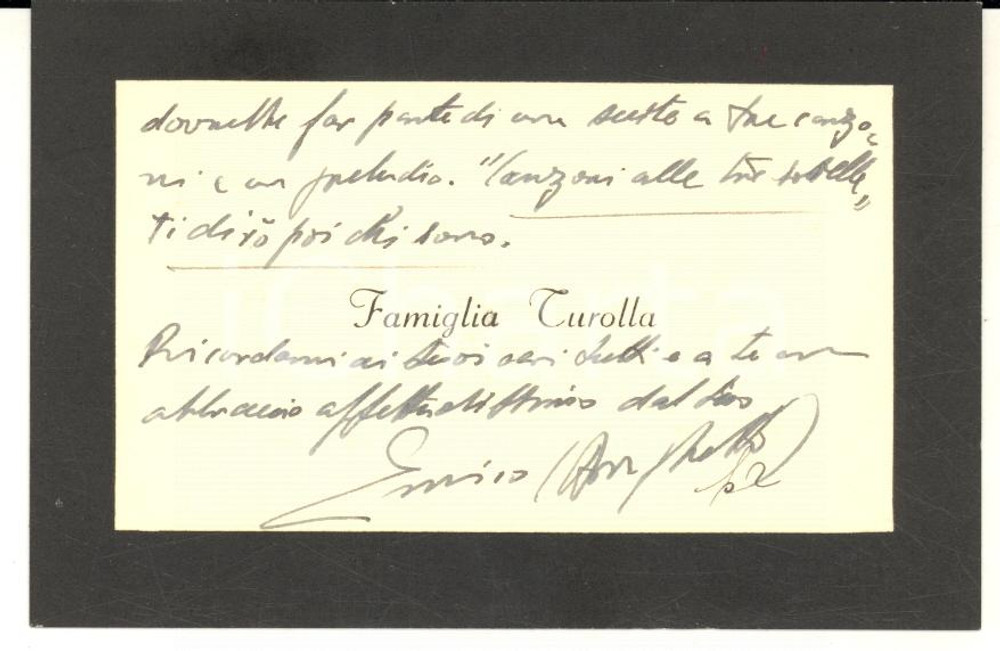 dovrebbe far parte di una suite a tre canzo-
ni e un preludio. "Canzoni alle tre sorelle"
ti dirò poi chi sono.
Famiglia Turolla
Ricordami ai tuoi cari tutti e a te un
abbraccio affettuosissimo dal tuo
Enrico